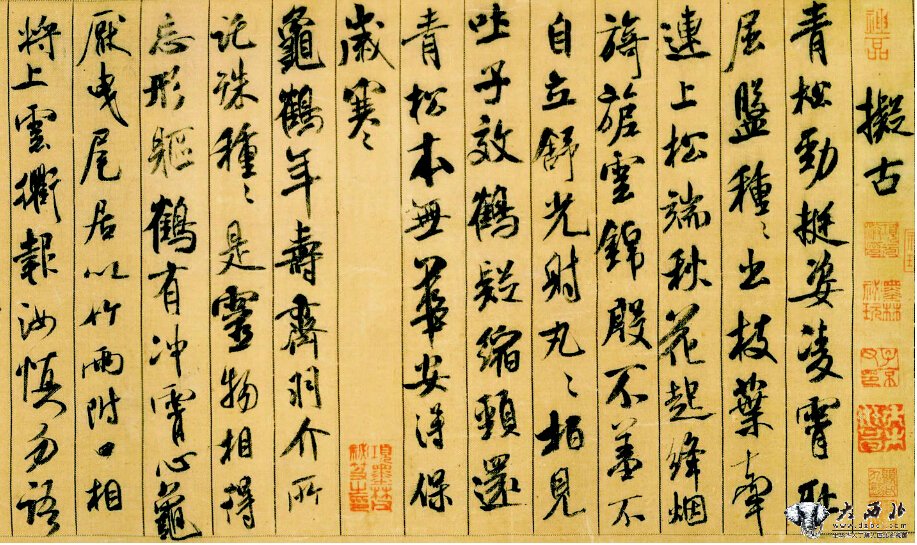 擬古
青松勁挺姿凌霄恥
屈盤種〻出枝葉牽
連上松端秋花起絳烟
旖旎雲錦殷不羞不
自立舒光射丸〻柏見
吐子效鶴疑縮頸還
青松本無華安得保
歲寒
龜鶴年壽齊羽介所
託殊種〻是靈物相得
忘形軀鶴有冲霄心龜
厭曳尾居以竹兩附口相
將上雲衢報汝慎勿語
項墨林父
秘笈之印
墨林
秘玩
子京
父印
大西北